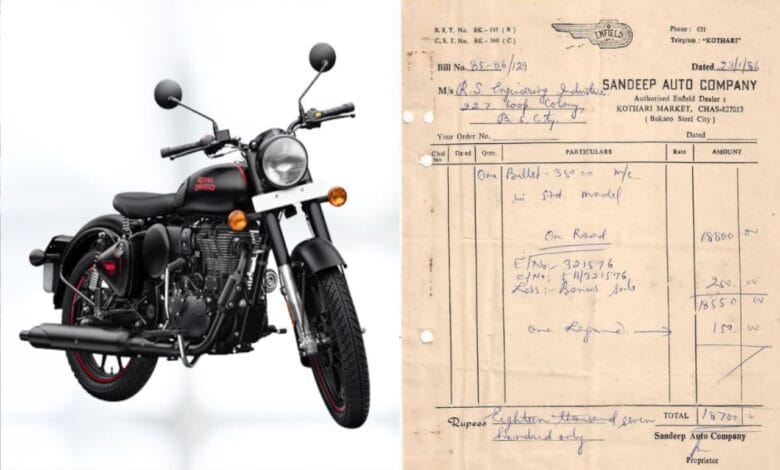 ROYAL
ENFIELD
B. S. T. No. BK - 195 ( R )
C. S. T. No. BK - 360 ( C )
ENFIELD
Phone : 631
Telegram : "KOTHARI"
Bill No. 85-86/129
Dated 23/1/86
M/s R.S. Engineering Industries
227 Coop Colony,
B. S. City
SANDEEP AUTO COMPANY
Authorised Enfield Dealer :
KOTHARI MARKET, CHAS-827013
( Bokaro Steel City )
Your Order No.
Dated
Chal No. Dated Qnty. PARTICULARS Rate AMOUNT
One Bullet - 350 cc m/c
in Std. model
On Road 18800 00
E/No:- 321576
C/No:- 5 B/321576
Less:- Bonus 250 00
18550 00
One 150 00
Rupees Eighteen thousand seven
hundred only
TOTAL 18700
Sandeep Auto Company
Proprietor